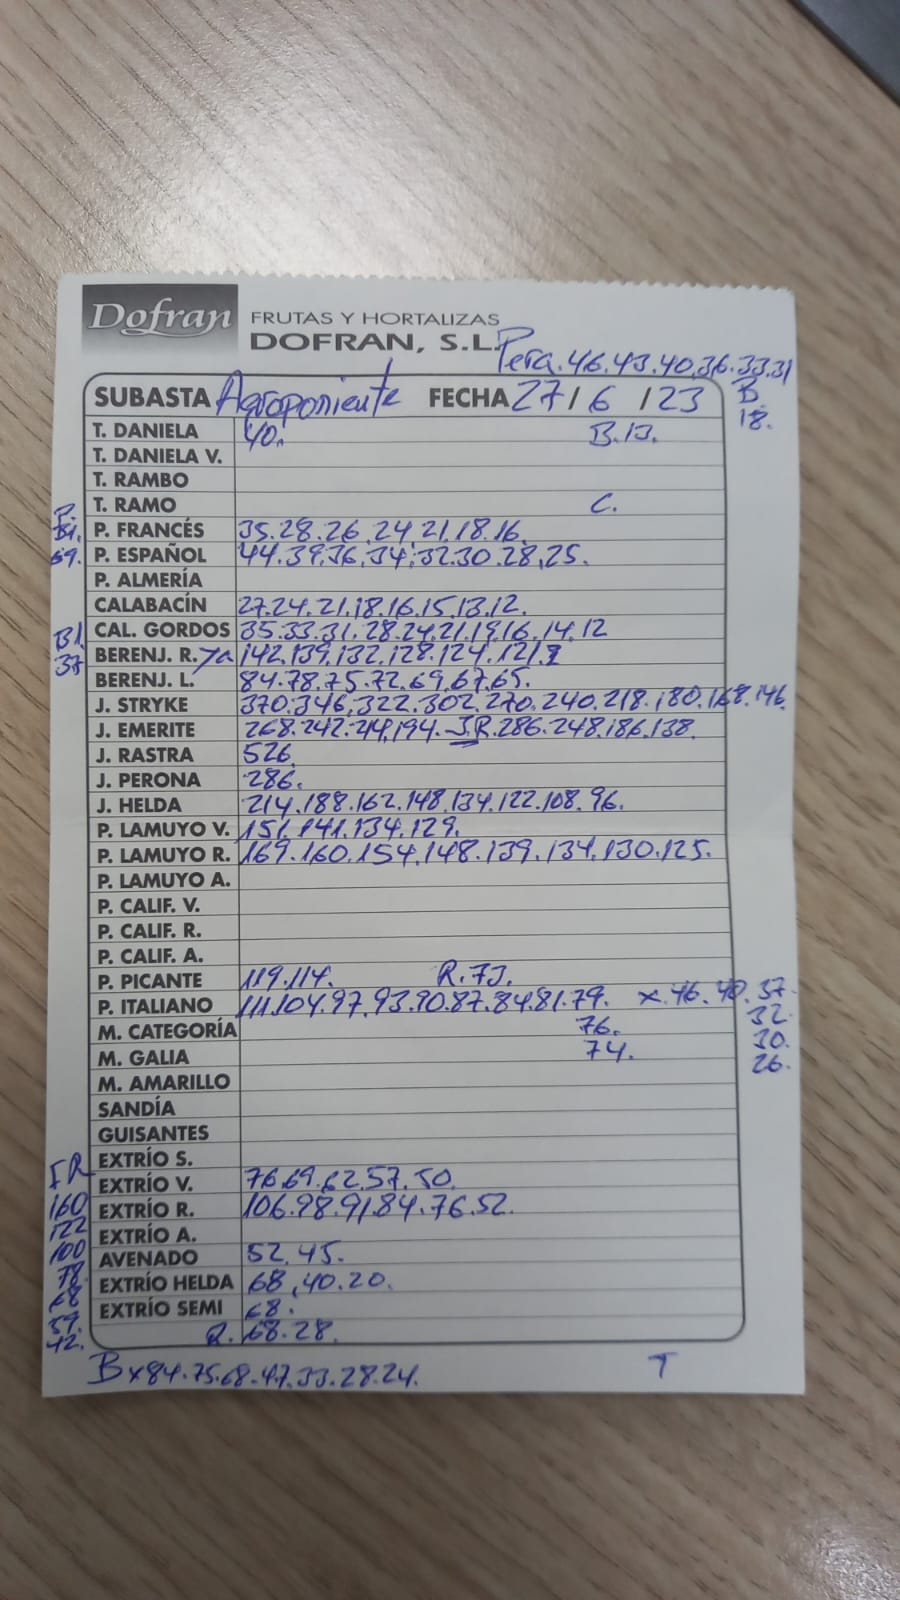 Dofran FRUTAS Y HORTALIZAS
DOFRAN, S.L.
Pera.46.43.40.36.33.31
SUBASTA Agroponiente FECHA 27/6/23 B
18.
T. DANIELA 40. B.13.
T. DANIELA V.
T. RAMBO
T. RAMO C.
P. FRANCÉS 35.28.26.24.21.18.16.
69. P. ESPAÑOL 44.39.36.34.32.30.28.25.
P. ALMERÍA
CALABACÍN 27.24.21.18.16.15.13.12.
Bl. CAL. GORDOS 35.33.31.28.24.21.19.16.14.12
37 BERENJ. R. 142.139.132.128.124.121.
BERENJ. L. 84.78.75.72.69.67.65.
J. STRYKE 370.346.322.302.270.240.218.180.168.146.
J. EMERITE 268.242.214.194. J.R.286.248.186.138.
J. RASTRA 526.
J. PERONA 286.
J. HELDA 214.188.162.148.134.122.108.96.
P. LAMUYO V. 151.141.134.129.
P. LAMUYO R. 169.160.154.148.139.134.130.125.
P. LAMUYO A.
P. CALIF. V.
P. CALIF. R.
P. CALIF. A.
P. PICANTE 119.114. R.73.
P. ITALIANO 111.104.97.93.90.87.84.81.79. x.46.40.37.
M. CATEGORÍA 76. 32.
M. GALIA 74. 30.
26.
M. AMARILLO
SANDÍA
GUISANTES
EXTRÍO S.
FR EXTRÍO V. 76.69.62.57.50.
160 EXTRÍO R. 106.98.91.84.76.52.
122 EXTRÍO A.
100 AVENADO 52.45.
78. EXTRÍO HELDA 68.40.20.
68 EXTRÍO SEMI 68.
57. R. 68.28.
42.
Bx84.75.68.47.33.28.24. T